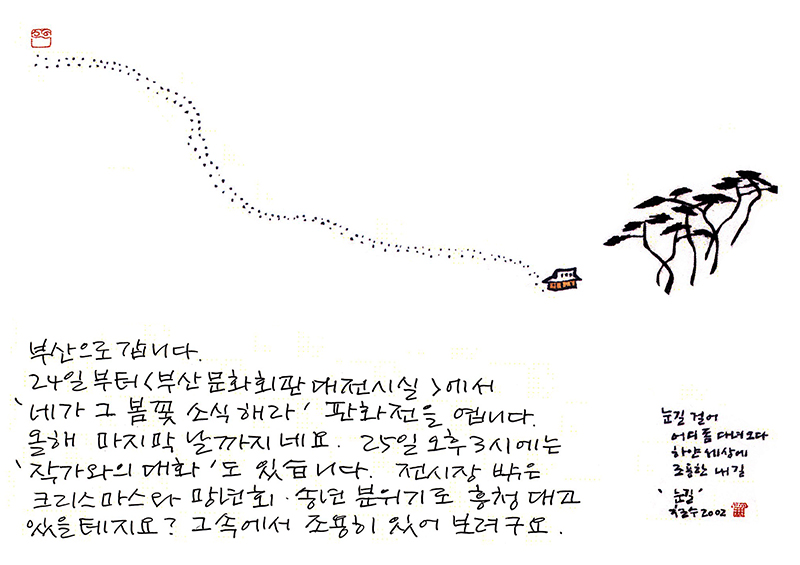 부산으로 갑니다.
24일 부터 <부산 문화회관 대전시실>에서
'네가 그 봄꽃 소식 해라' 판화전을 엽니다.
올해 마지막 날까지네요. 25일 오후 3시에는
'작가와의 대화'도 있습니다. 전시장 밖은
크리스마스와 망년회·송년 분위기로 흥청대고
있을테지요? 그속에서 조용히 있어 보려구요.
눈길 걸어
어디 좀 다녀오다
하얀 세상에
조용한 내 길
'눈길'
2002